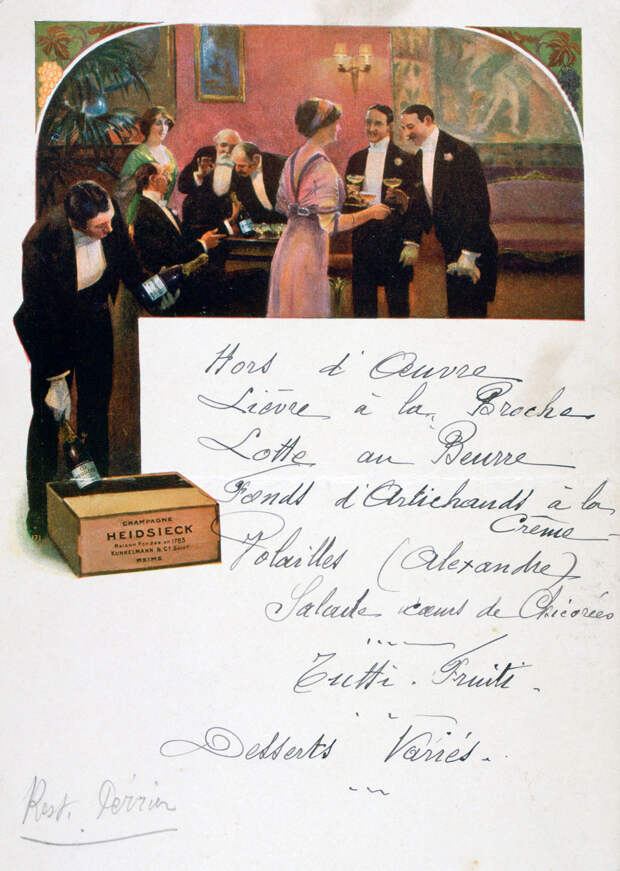 CHAMPAGNE
HEIDSIECK
MAISON FONDÉE EN 1785
KUNKELMANN & Co SUCrs
REIMS
Hors d'Œuvre
Lièvre à la Broche
Lotte au Beurre
Fonds d'Artichauds à la
Crême
Volailles (Alexandre)
Salade cœurs de Chicorées
Tutti. Fruiti.
Desserts Variés.
Rest. Périer